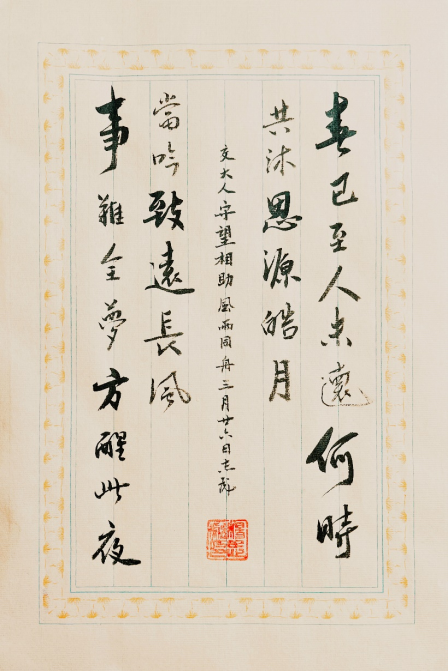 春已至人未還何時
共沐思源皓月
事難全夢方醒此夜
當吟致遠長風
交大人守望相助風雨同舟三月廿六日志